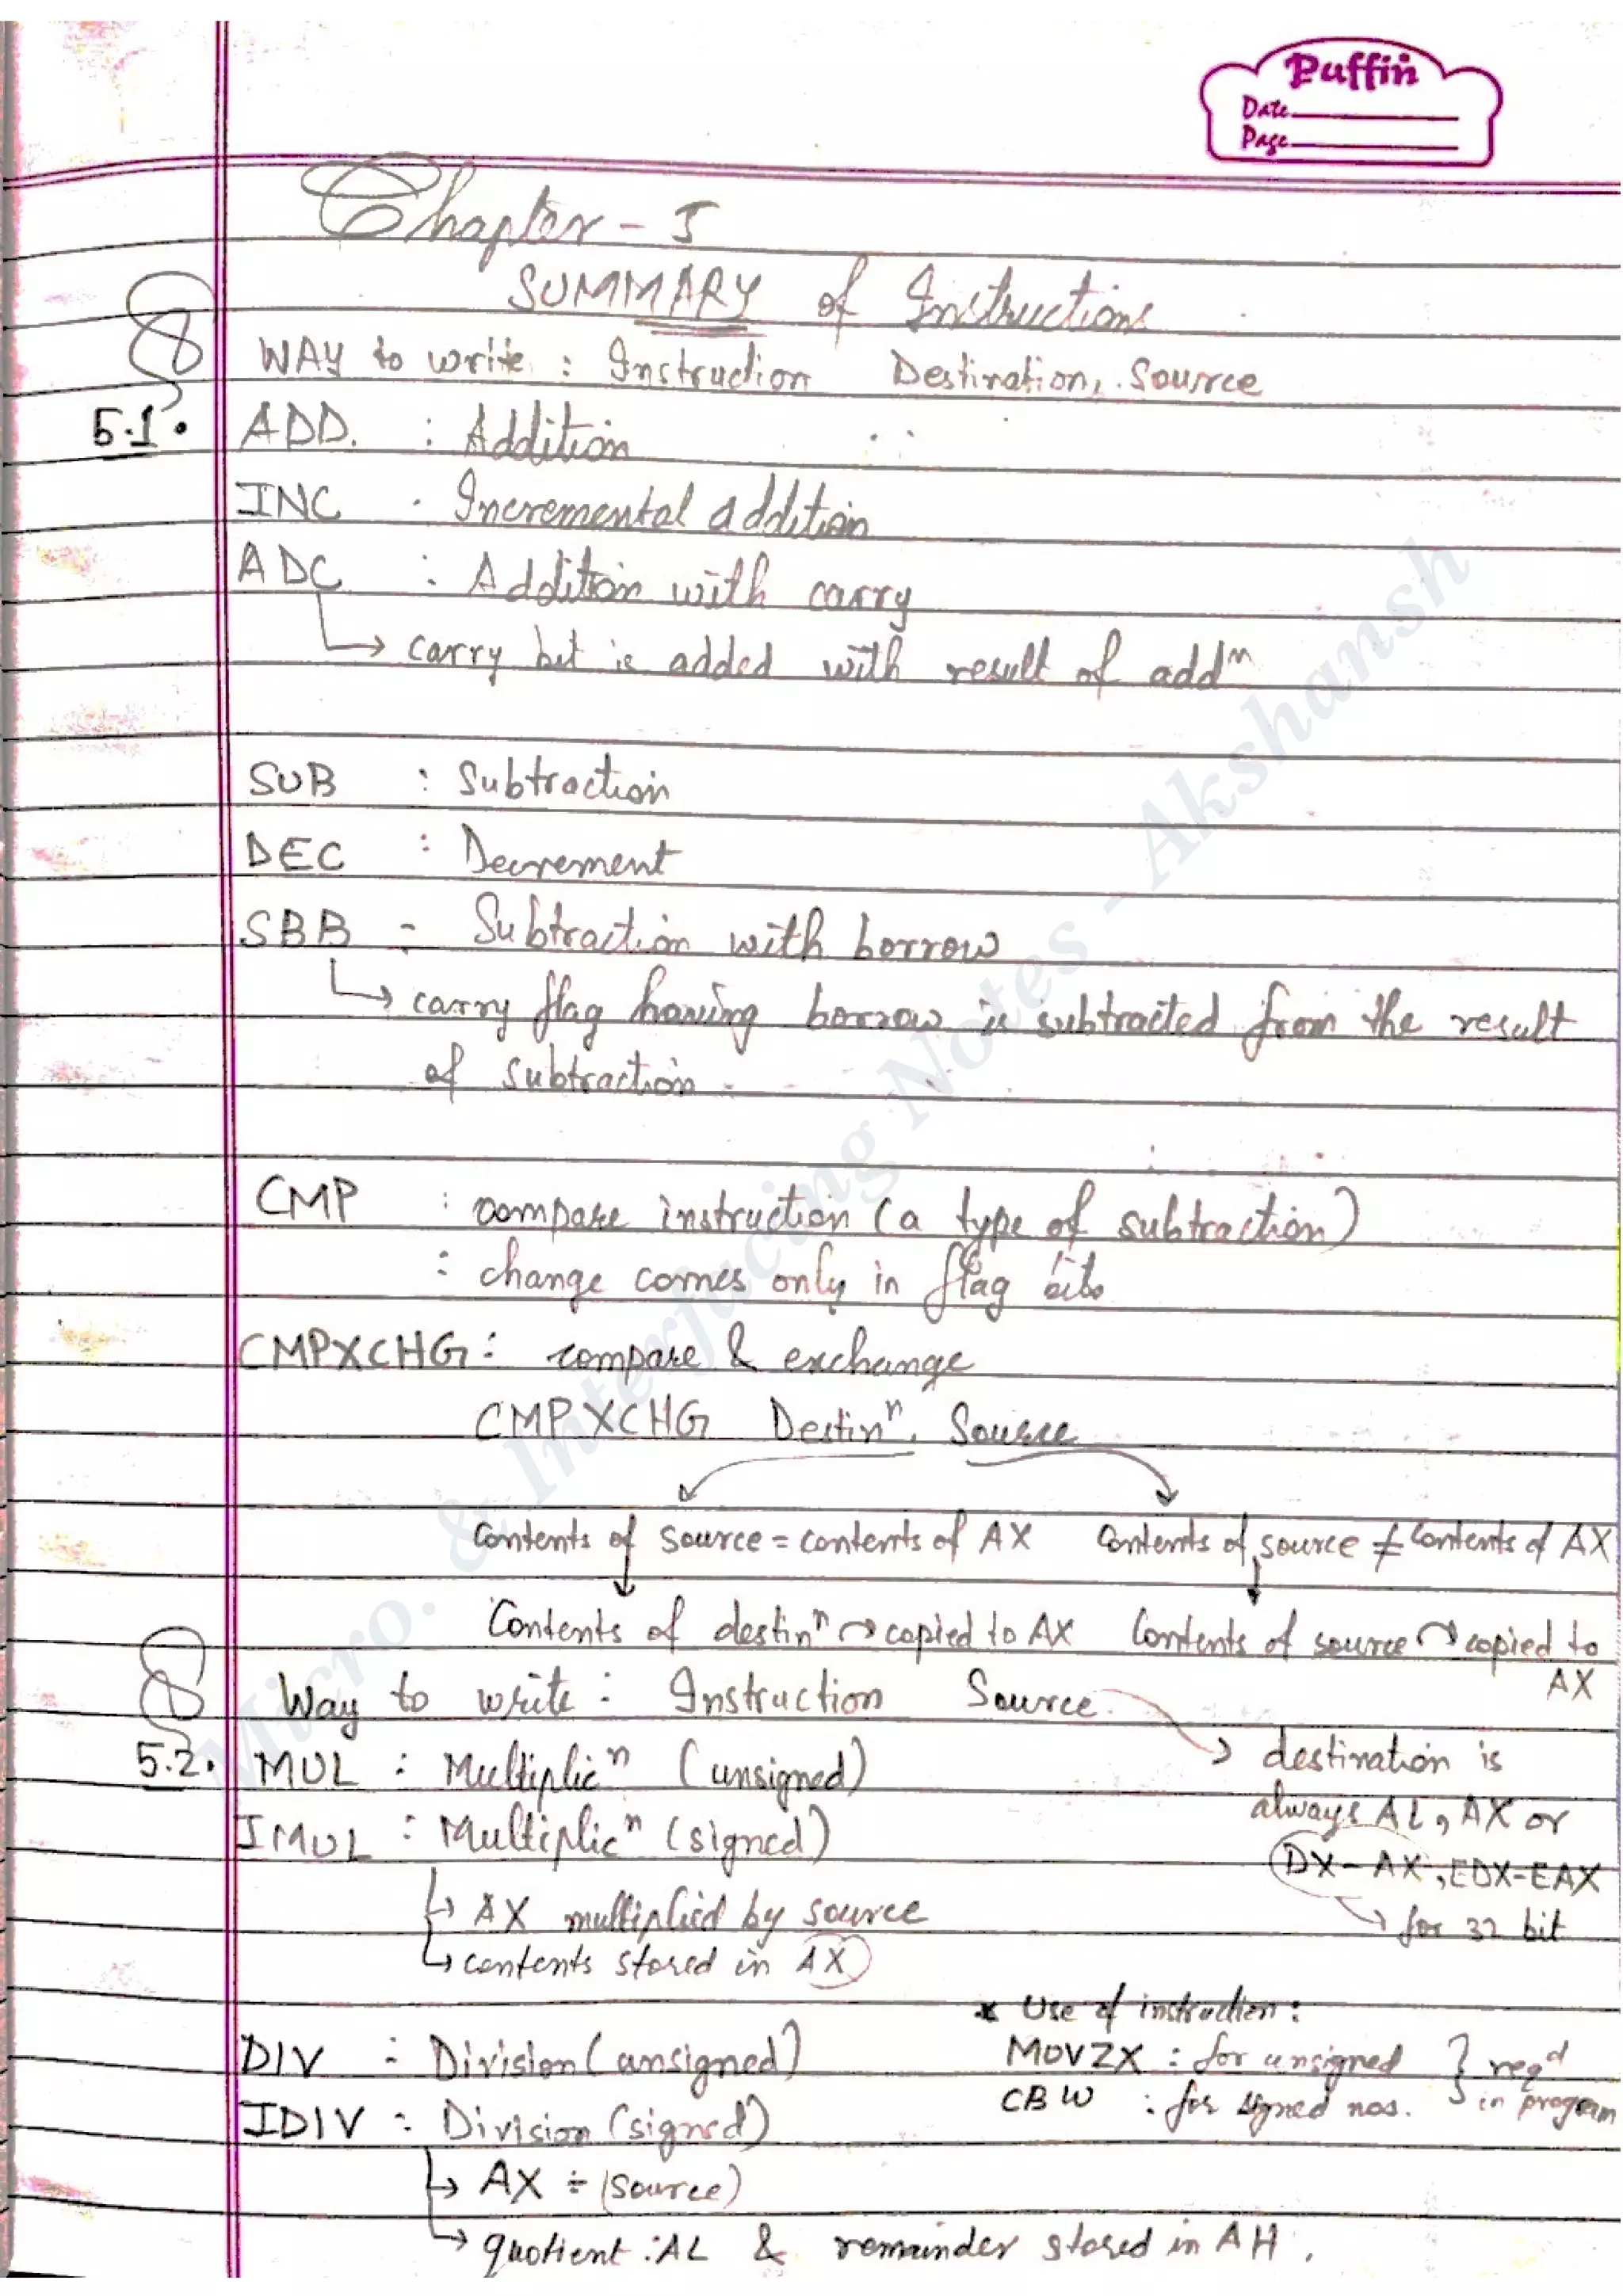 Puffin
Date
Page
Chapter - 5
SUMMARY of Instructions
WAY to write : Instruction Destination, Source
5.1. ADD. : Addition
INC : Incremental addition
ADC : Addition with carry
↳ carry bit is added with result of addⁿ
SUB : Subtraction
DEC : Decrement
SBB : Subtraction with borrow
↳ carry flag having borrow is subtracted from the result
of subtraction.
CMP : compare instruction (a type of subtraction)
: change comes only in flag bits
CMPXCHG : compare & exchange
CMPXCHG Destinⁿ, Source
Contents of source = contents of AX Contents of source ≠ contents of AX
Contents of destinⁿ → copied to AX Contents of source → copied to
AX
Way to write : Instruction Source
→ destination is
always AL, AX or
DX-AX, EDX-EAX
→ for 32 bit
5.2. MUL : Multiplicⁿ (unsigned)
IMUL : Multiplicⁿ (signed)
↳ AX multiplied by source
↳ contents stored in AX
* Use of instruction :
MOVZX : for unsigned } reqᵈ
CBW : for signed nos. in program
DIV : Division (unsigned)
IDIV : Division (signed)
↳ AX ÷ (source)
↳ quotient : AL & remainder stored in AH.
Micro. & Interfacing Notes - Akshansh